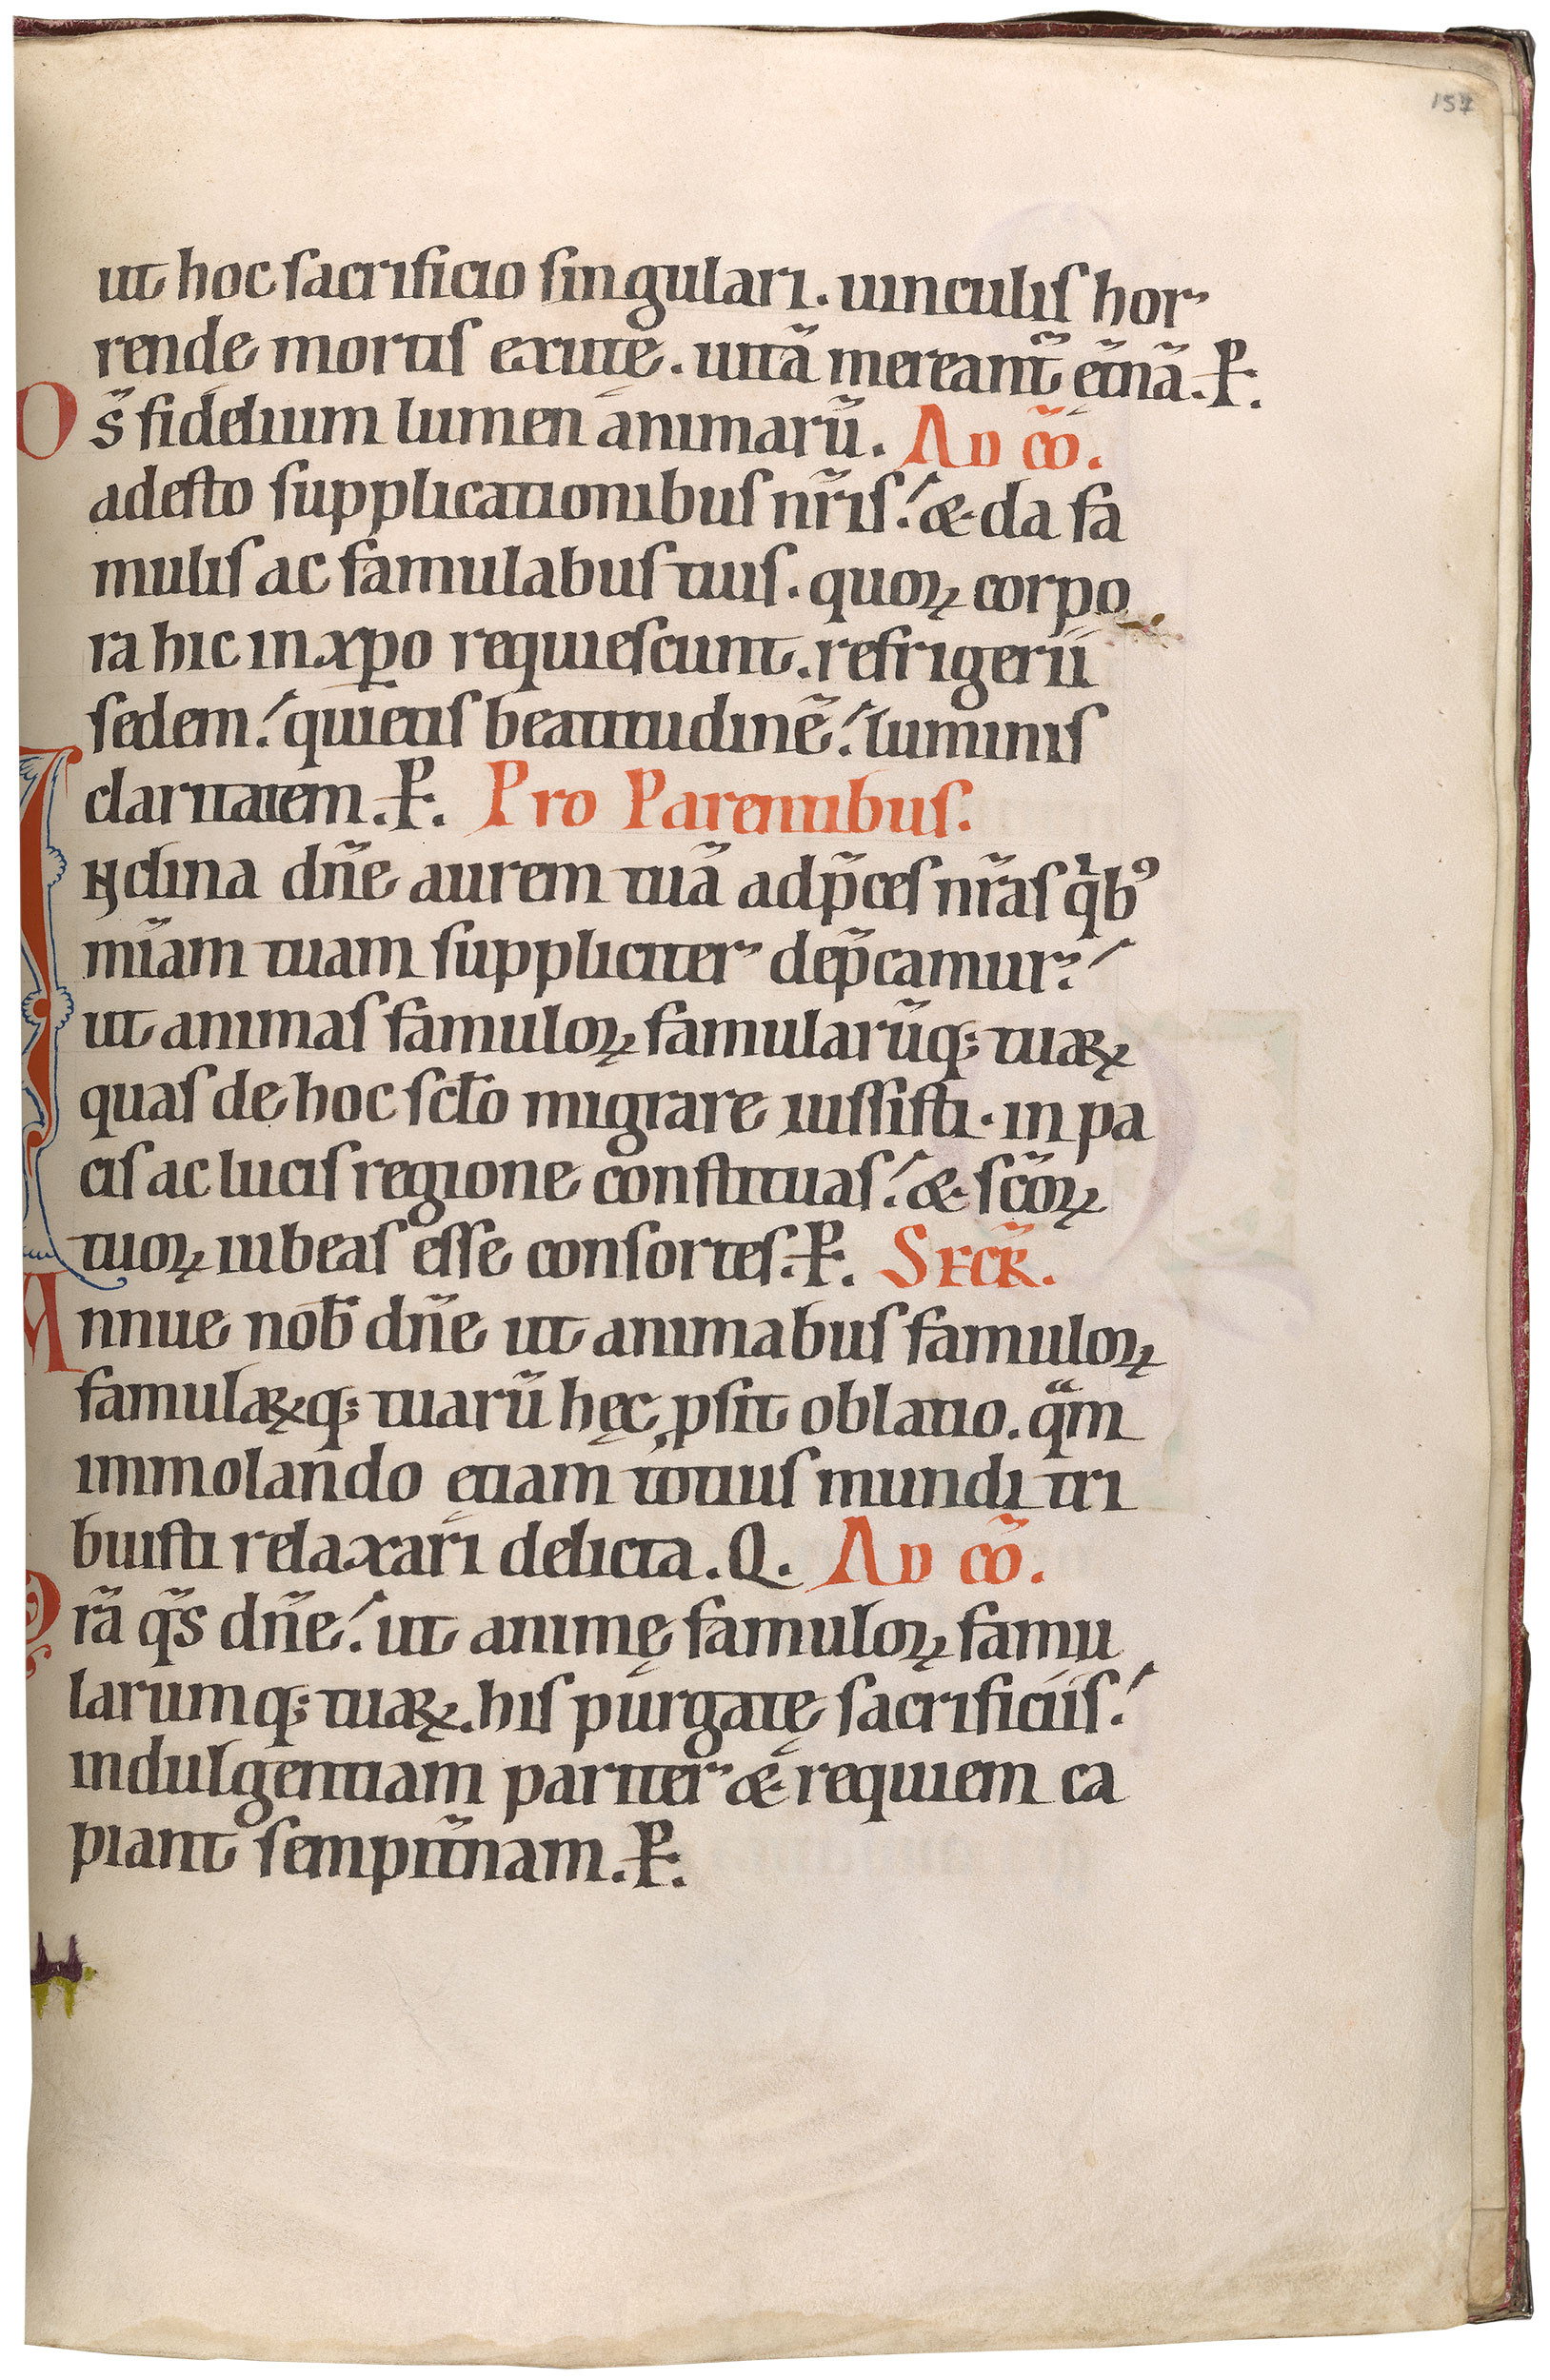 157
ut hoc sacrificio singulari. uinculis hor
rende mortis exutę. uitã mereant̃ ęt̃nã. P.
Ds̃ fidelium lumen animarũ. Ad cõ.
adesto supplicationibus nr̃is! & da fa
mulis ac famulabus tuis. quoꝝ corpo
ra hic in xp̃o requiescunt. refrigerii
sedem! quietis beatitudinẽ! luminis
claritatem. P. Pro Parentibus.
Inclina dñe aurem tuã ad p̃ces nr̃as qͥbꝰ
miãm tuam suppliciter dep̃camur!
ut animas famuloꝝ famularũq; tuaꝝ
quas de hoc scl̃o migrare iussisti. in pa
cis ac lucis regione constituas! & sc̃oꝝ
tuoꝝ iubeas esse consortes. P. Secr̃.
Annue nob̃ dñe ut animabus famuloꝝ
famulaꝝq; tuarũ hęc ꝓsit oblatio. qᵃm
immolando etiam totius mundi tri
buisti relaxari delicta. Q. Ad cõ.
Pr̃a qs̃ dñe! ut animę famuloꝝ famu
larumq; tuaꝝ. his purgatę sacrificiis!
indulgentiam pariter & requiem ca
piant sempit̃nam. P.